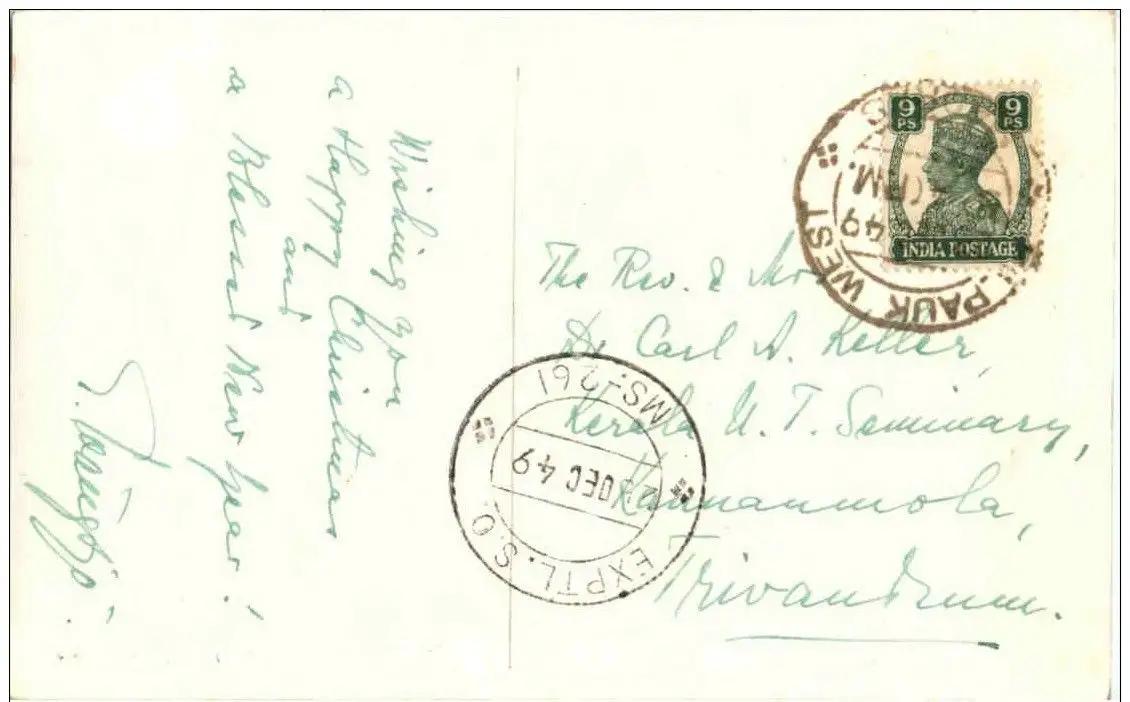 Wishing you
a Happy Christmas
and
a Blessed New Year!
9 PS
9 PS
INDIA POSTAGE
PAUK WEST
49
The Rev. & Mrs
Dr Carl A. Keller,
Kerala U. T. Seminary,
Kannanmola,
Trivandrum.
EXPTL. S.O.
DEC 49
MS-261